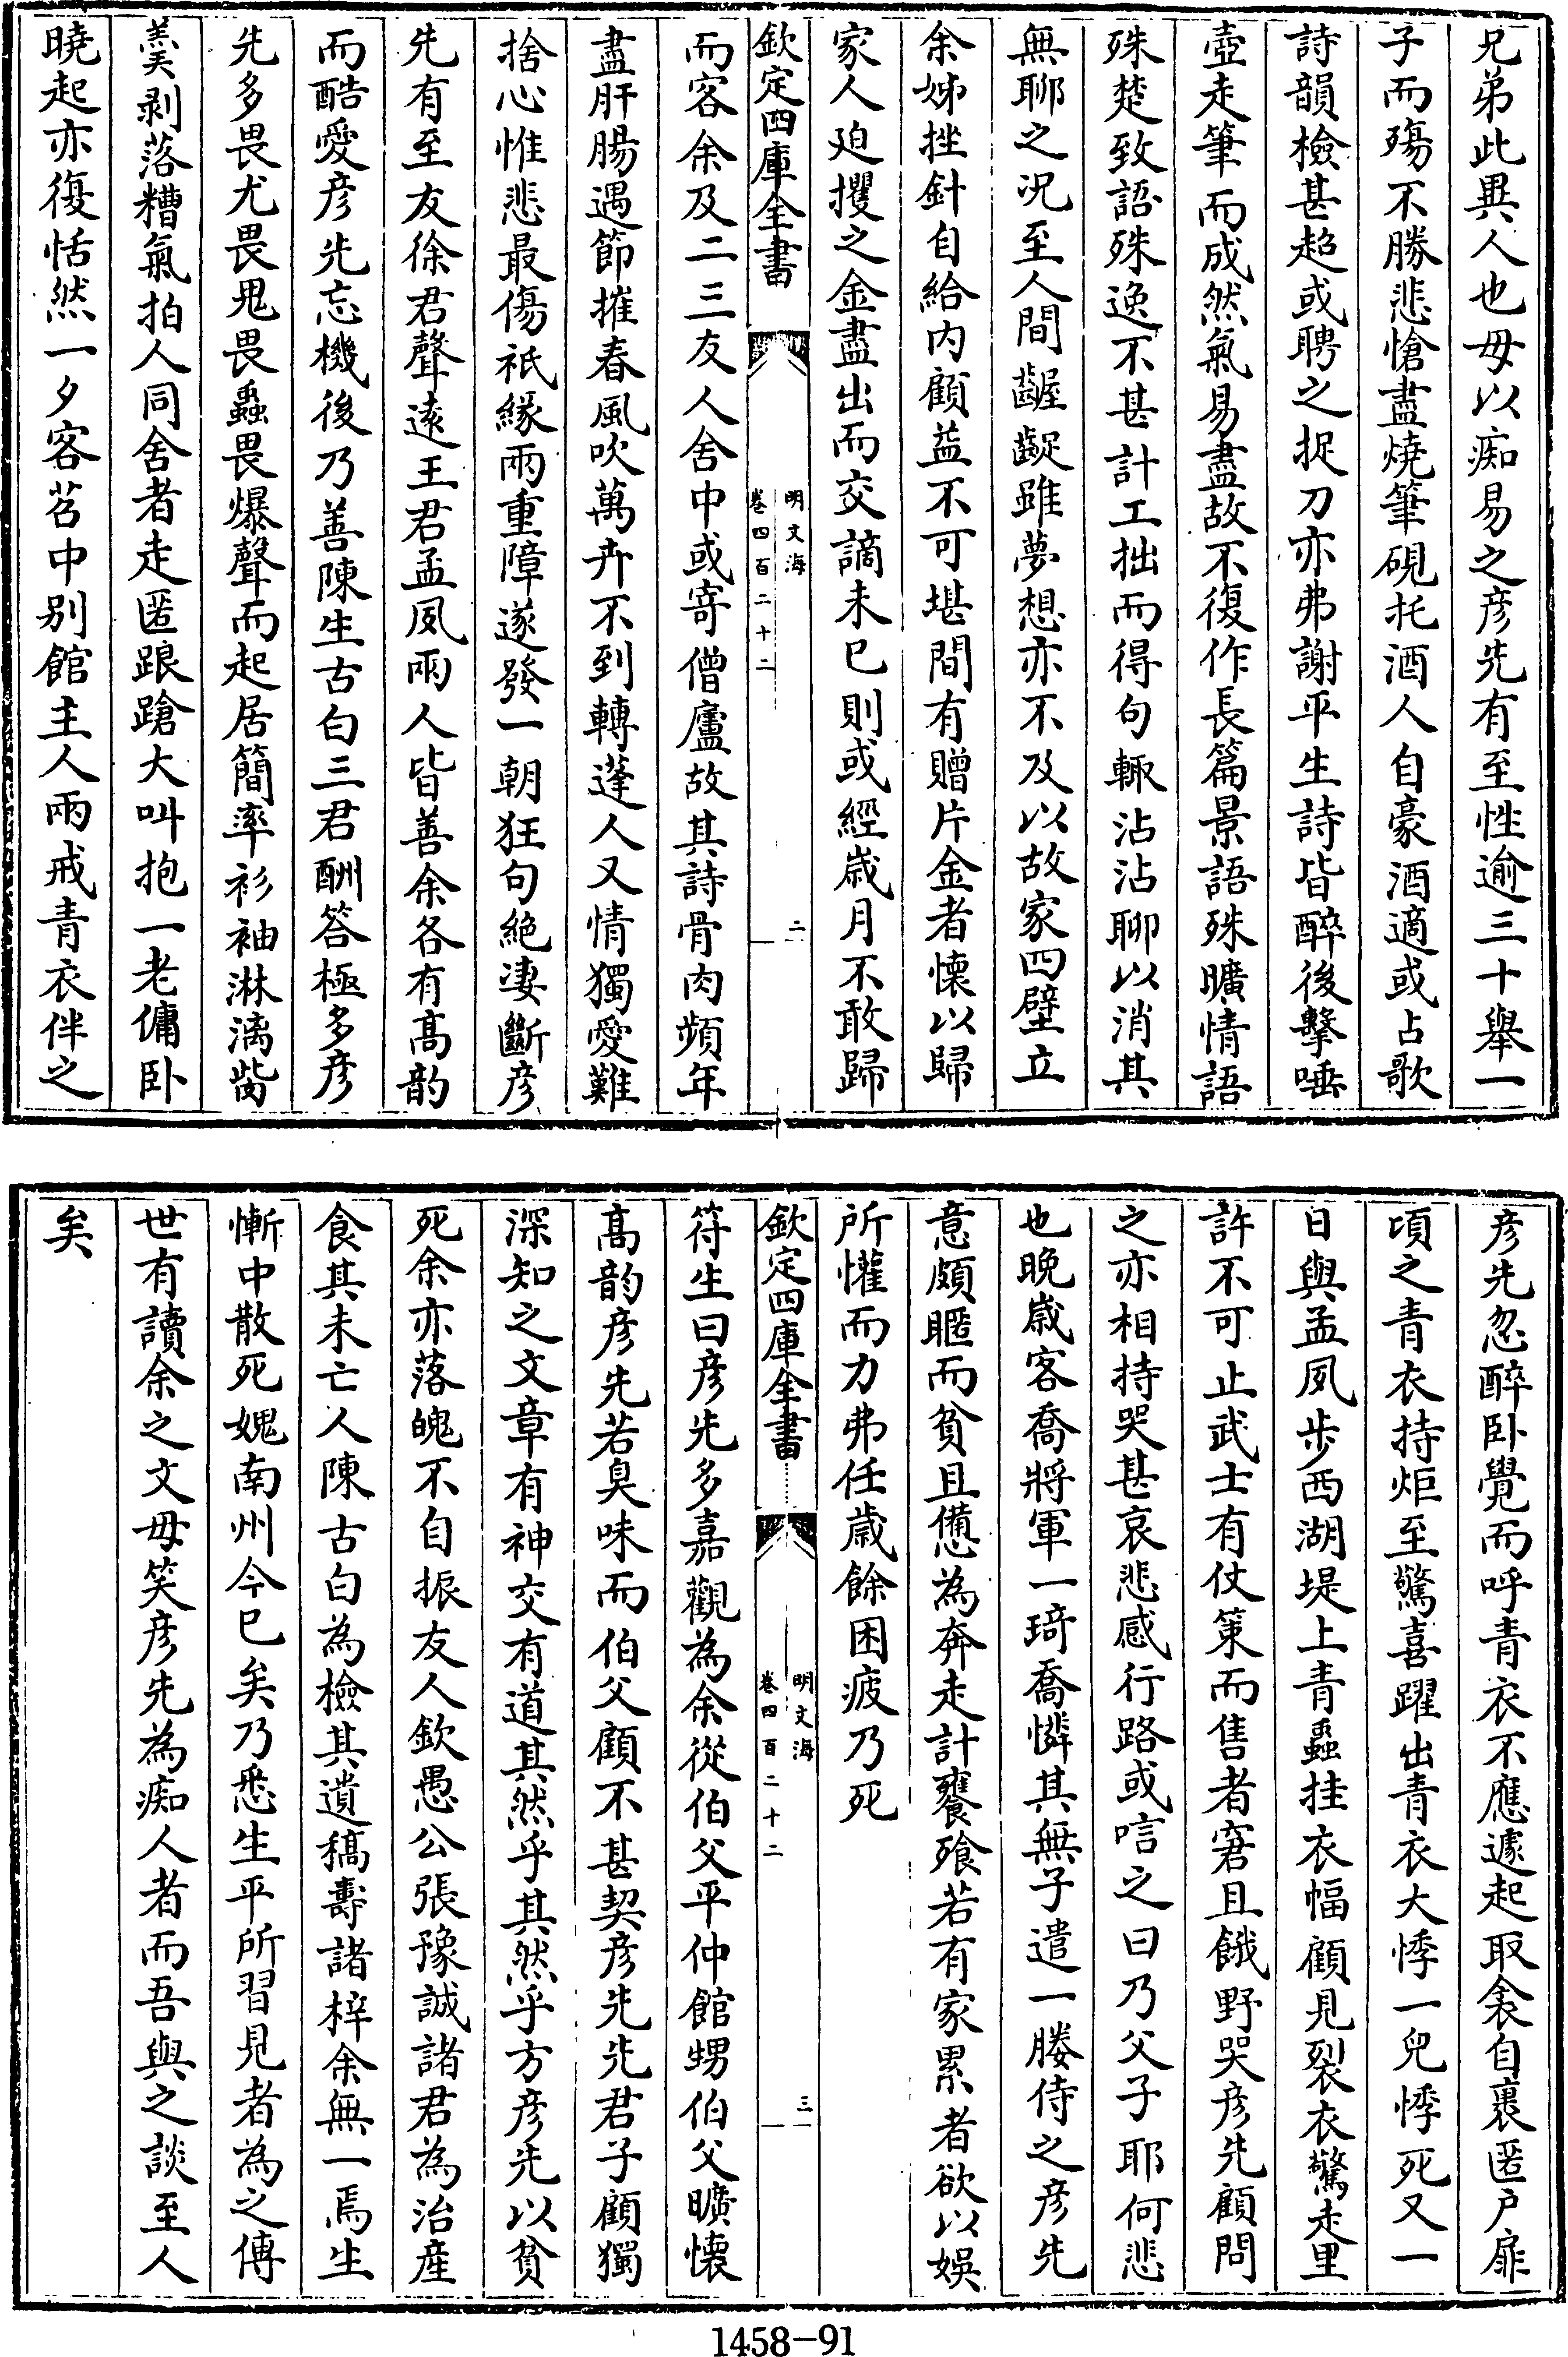 兄弟此異人也毋以痴易之彦先有至性逾三十舉一
子而殤不勝悲愴盡燒筆硯托酒人自豪酒適或占歌
詩韻檢甚超或聘之捉刀亦弗謝平生詩皆醉後擊唾
壺走筆而成然氣易盡故不復作長篇景語殊曠情語
殊楚致語殊逸不甚計工拙而得句輙沾沾聊以消其
無聊之况至人間齷齪雖夢想亦不及以故家四壁立
余姊挫針自給内顧益不可堪間有贈片金者懷以歸
家人廹攫之金盡出而交謫未已則或經嵗月不敢歸
欽定四庫全書
明文海
卷四百二十二
二
而客余及二三友人舍中或寄僧廬故其詩骨肉頻年
盡肝腸遇節摧春風吹萬卉不到轉蓬人又情獨愛難
捨心惟悲最傷祇緣兩重障遂發一朝狂句絶凄斷彦
先有至友徐君聲遠王君孟夙兩人皆善余各有髙韵
而酷愛彦先忘機後乃善陳生古白三君酬答極多彦
先多畏尤畏鬼畏蝨畏爆聲而起居簡率衫袖淋漓嵗
羹剥落糟氣拍人同舍者走匿踉蹌大叫抱一老傭卧
曉起亦復恬然一夕客苕中别館主人兩戒青衣伴之
彦先忽醉卧覺而呼青衣不應遽起取衾自裹匿户扉
頃之青衣持炬至驚喜躍出青衣大悸一兒悸死又一
日與孟夙步西湖堤上青蝨挂衣幅顧見裂衣驚走里
許不可止武士有仗策而售者窘且餓野哭彦先顧問
之亦相持哭甚哀悲感行路或唁之曰乃父子耶何悲
也晚嵗客喬將軍一琦喬憐其無子遣一媵侍之彦先
意頗暱而貧且憊為奔走計饔飱若有家累者欲以娛
所懽而力弗任嵗餘困疲乃死
欽定四庫全書
明文海
卷四百二十二
三
符生曰彦先多嘉觀為余從伯父平仲館甥伯父曠懷
髙韵彦先若臭味而伯父顧不甚契彦先先君子顧獨
深知之文章有神交有道其然乎其然乎方彦先以貧
死余亦落魄不自振友人欽愚公張豫誠諸君為治産
食其未亡人陳古白為檢其遺稿夀諸梓余無一焉生
慚中散死媿南州今已矣乃悉生平所習見者為之傳
世有讀余之文毋笑彦先為痴人者而吾與之談至人
矣
1458-91